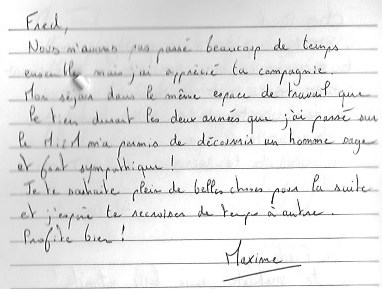 Fred,
Nous n'avons pas passé beaucoup de temps
ensemble mais j'ai apprécié ta compagnie.
Mon séjour dans le même espace de travail que
le tien durant les deux années que j'ai passé sur
le m'a permis de découvrir un homme sage
et fort sympathique !
Je te souhaite plein de belles choses pour la suite
et j'espère te recroiser de temps à autre.
Profite bien !
Maxime